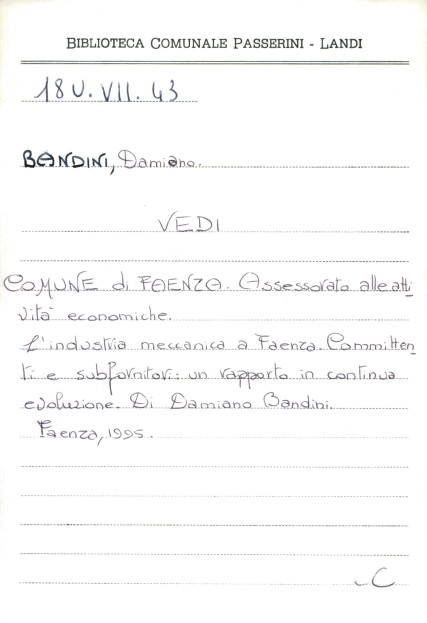 BIBLIOTECA COMUNALE PASSERINI - LANDI
18 U. VII. 43
BANDINI, Damiano.
VEDI
COMUNE di FAENZA. Assessorato alle atti
vità economiche.
L'industria meccanica a Faenza. Committen
ti e subfornitori: un rapporto in continua
evoluzione. Di Damiano Bandini.
Faenza, 1995.
C